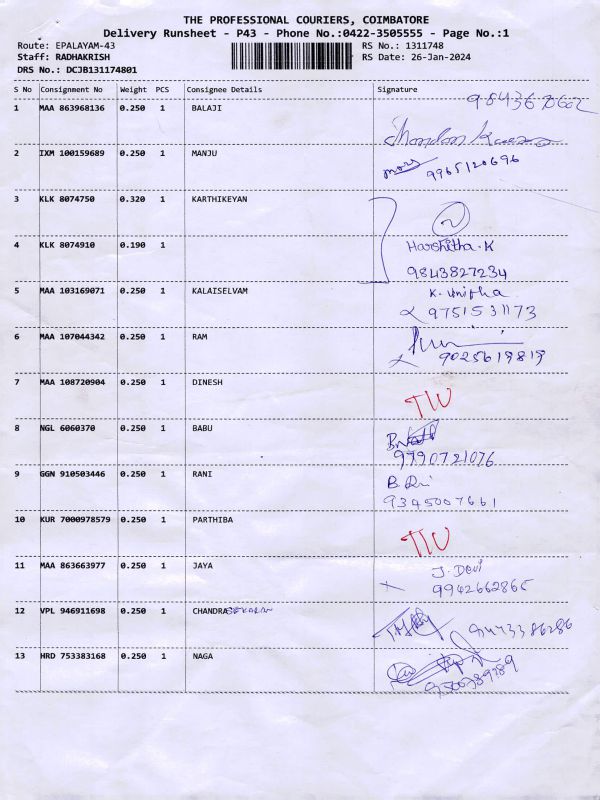 THE PROFESSIONAL COURIERS, COIMBATORE
Delivery Runsheet - P43 - Phone No.:0422-3505555 - Page No.:1
Route: EPALAYAM-43 RS No.: 1311748
Staff: RADHAKRISH RS Date: 26-Jan-2024
DRS No.: DCJB131174801
S No Consignment No Weight PCS Consignee Details Signature
1 MAA 863968136 0.250 1 BALAJI
2 IXM 100159689 0.250 1 MANJU
9965120696
3 KLK 8074750 0.320 1 KARTHIKEYAN
4 KLK 8074910 0.190 1 Harshitha.K
9843827234
5 MAA 103169071 0.250 1 KALAISELVAM K.
9751531173
6 MAA 107044342 0.250 1 RAM
9025619819
7 MAA 108720904 0.250 1 DINESH
8 NGL 6060370 0.250 1 BABU
9790721076
9 GGN 910503446 0.250 1 RANI B.
9345007661
10 KUR 7000978579 0.250 1 PARTHIBA
11 MAA 863663977 0.250 1 JAYA J. Devi
9942662865
12 VPL 946911698 0.250 1 CHANDRASEKARAN
13 HRD 753383168 0.250 1 NAGA